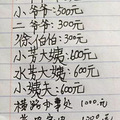 小爷爷:300元
二爷爷:300元
徐伯伯:300元
小芳大姨:600元
水芳大姨:600元
小姨夫:600元
横路办事处 1000元